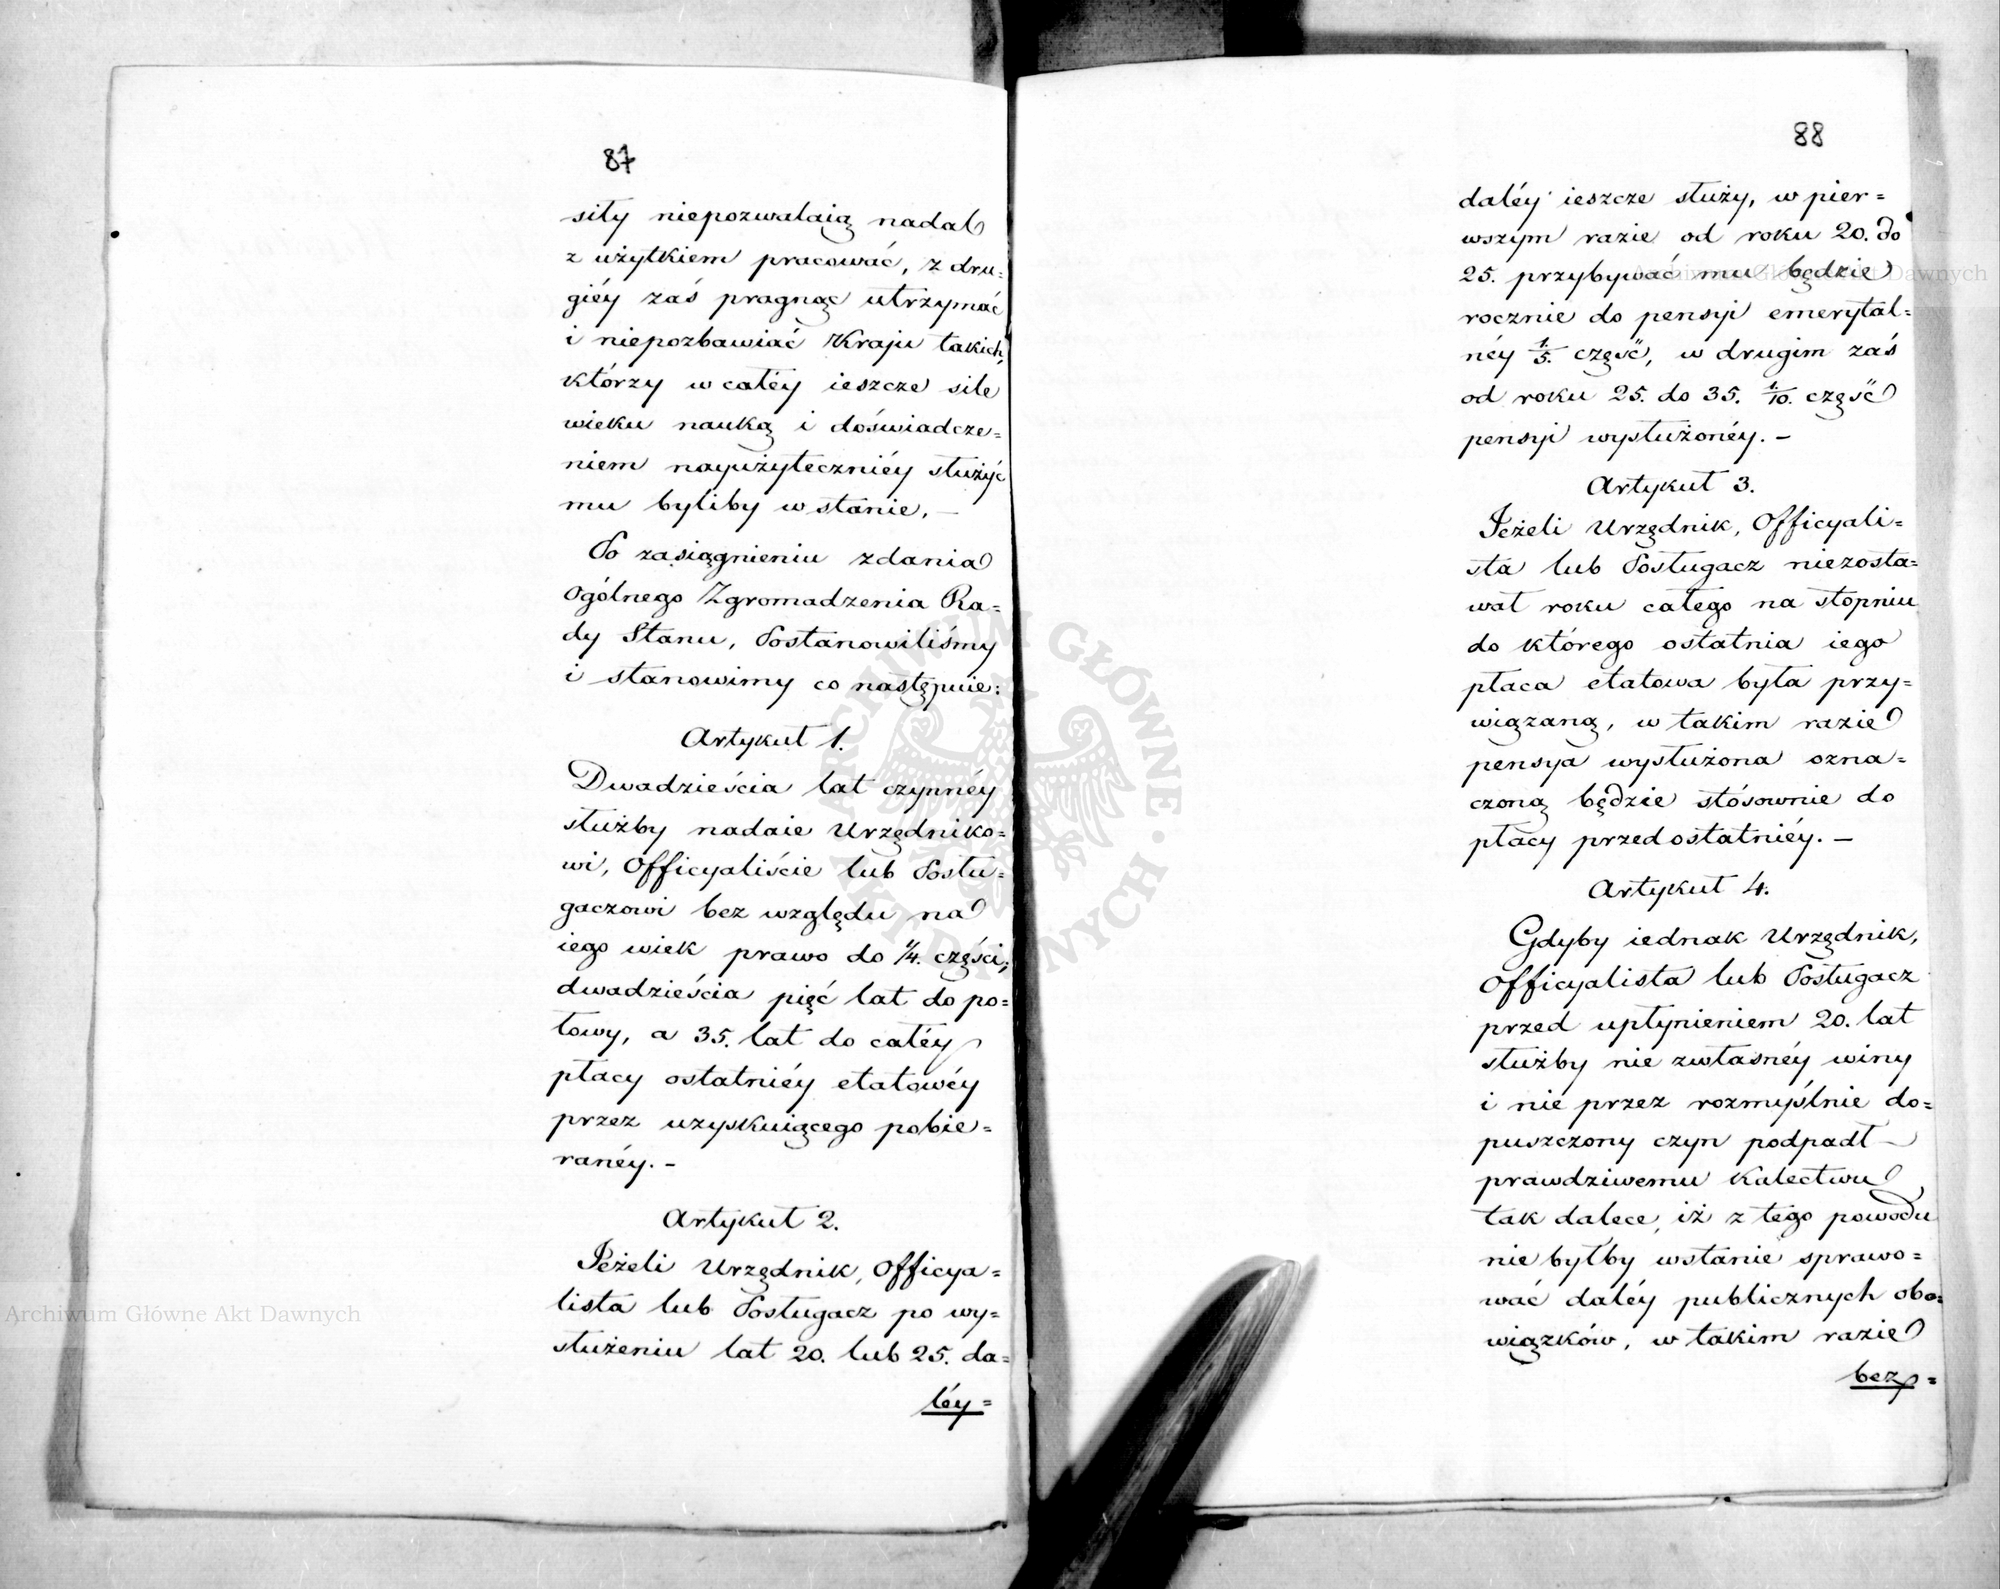 87
siły niepozwalaią nadal
z użytkiem pracować, z dru=
giéy zaś pragnąc utrzymać
i niepozbawiać Kraju takich,
którzy w całéy ieszcze sile
wieku nauką i doświadcze=
niem nayużyteczniéy służyć
mu byliby w stanie, —
Po zasiągnieniu zdania
Ogólnego Zgromadzenia Ra=
dy Stanu, Postanowiliśmy
i stanowimy co następuie:
Artykuł 1.
Dwadzieścia lat czynnéy
służby nadaie Urzędniko=
wi, Officyaliście lub Posłu=
gaczowi bez względu na
iego wiek prawo do 1/4. części;
dwadzieścia pięć lat do po=
łowy, a 35. lat do całéy
płacy ostatniéy etatowéy
przez uzyskuiącego pobie=
ranéy. —
Artykuł 2.
Jeżeli Urzędnik, Officya=
lista lub Posługacz po wy=
służeniu lat 20. lub 25. da=
léy =
88
daléy ieszcze służy, w pier=
wszym razie od roku 20. do
25. przybywać mu będzie
rocznie do pensyi emerytal=
néy 1/5. część, w drugim zaś
od roku 25. do 35. 1/10. część
pensyi wysłużonéy. —
Artykuł 3.
Jeżeli Urzędnik, Officyali=
sta lub Posługacz niezosta=
wał roku całego na stopniu
do którego ostatnia iego
płaca etatowa była przy=
wiązaną, w takim razie
pensya wysłużona ozna=
czoną będzie stósownie do
płacy przedostatniéy. —
Artykuł 4.
Gdyby iednak Urzędnik,
Officyalista lub Posługacz
przed upłynieniem 20. lat
służby nie zwłasnéy winy
i nie przez rozmyślnie do=
puszczony czyn podpadł —
prawdziwemu Kalectwu
tak dalece, iż z tego powodu
nie byłby wstanie sprawo=
wać daléy publicznych obo=
wiązków, w takim razie
bez =
Archiwum Główne Akt Dawnych
Archiwum Główne Akt Dawnych
ARCHIWUM GŁÓWNE AKT DAWNYCH